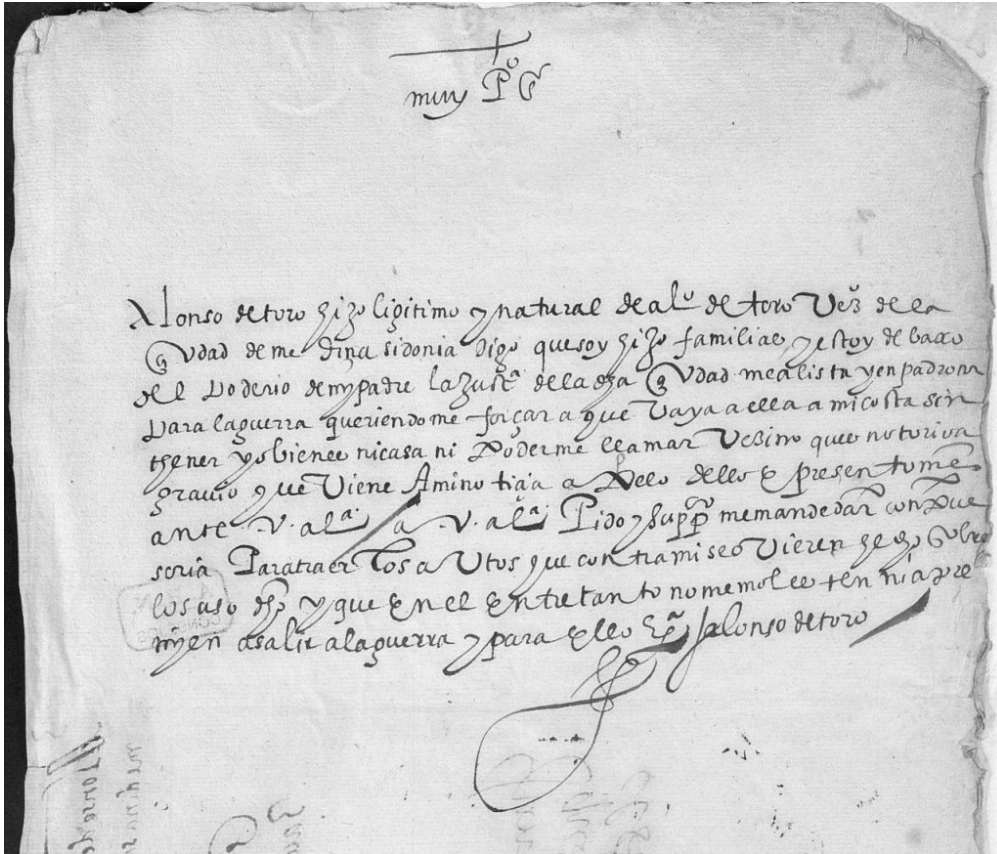 muy P.º s.
Alonso de toro hijo ligitimo y natural de al.º de toro Vez.º de la
ciudad de me dina sidonia digo que soy hijo familias y estoy de baxo
del poderio de my padre la just.ª de la dha ciudad me alista y enpadrona
para la guerra queriendo me forçar a que vaya a ella a mi costa sin
thener yo bienes ni casa ni poderme llamar vezino ques notorio a
gravio que viene a mi notiçia apelo dello e presentome
ante v. al.ª a v. al.ª pido y supp.co me mande dar conpul
soria para traer los autos que contra mi se ovieren hecho sobre
lo suso dho y que en el entretanto no me molesten ni apre
myen a salir a la guerra y para ello &.ª Alonso de toro